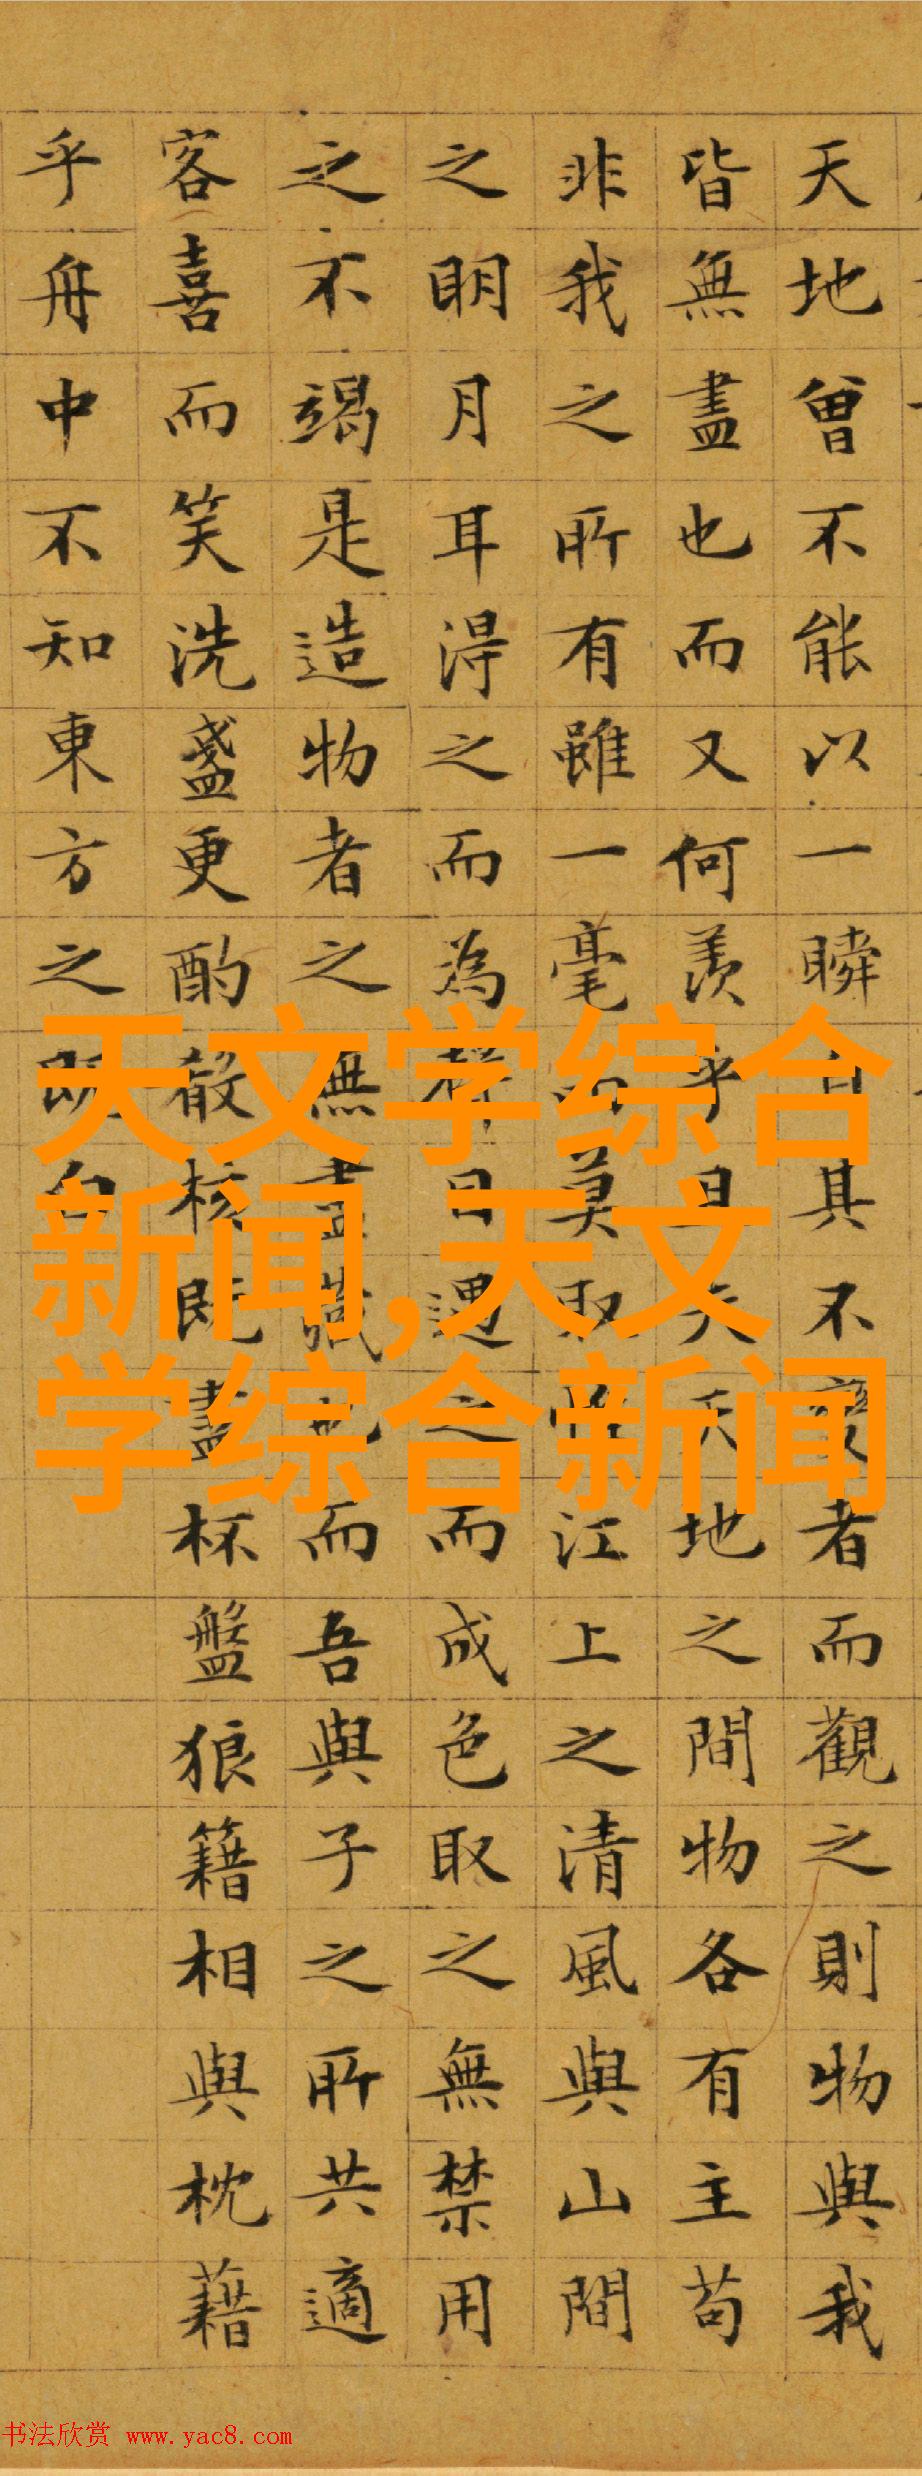 天地曾不能以一瞬自其不變者而觀之則物與我
皆無盡也而又何羨乎且夫天地之間物各有主苟
非我之所有雖一毫而莫取惟江上之清風與山間
之眀月耳得之而為聲目遇之而成色取之無禁用
之不竭是造物者之無盡藏也而吾與子之所共適
客喜而笑洗盞更酌殽核既盡杯盤狼籍相與枕藉
乎舟中不知東方之既白
天文学综合
新闻,天文
学综合新闻
书法欣赏 www.yac8.com